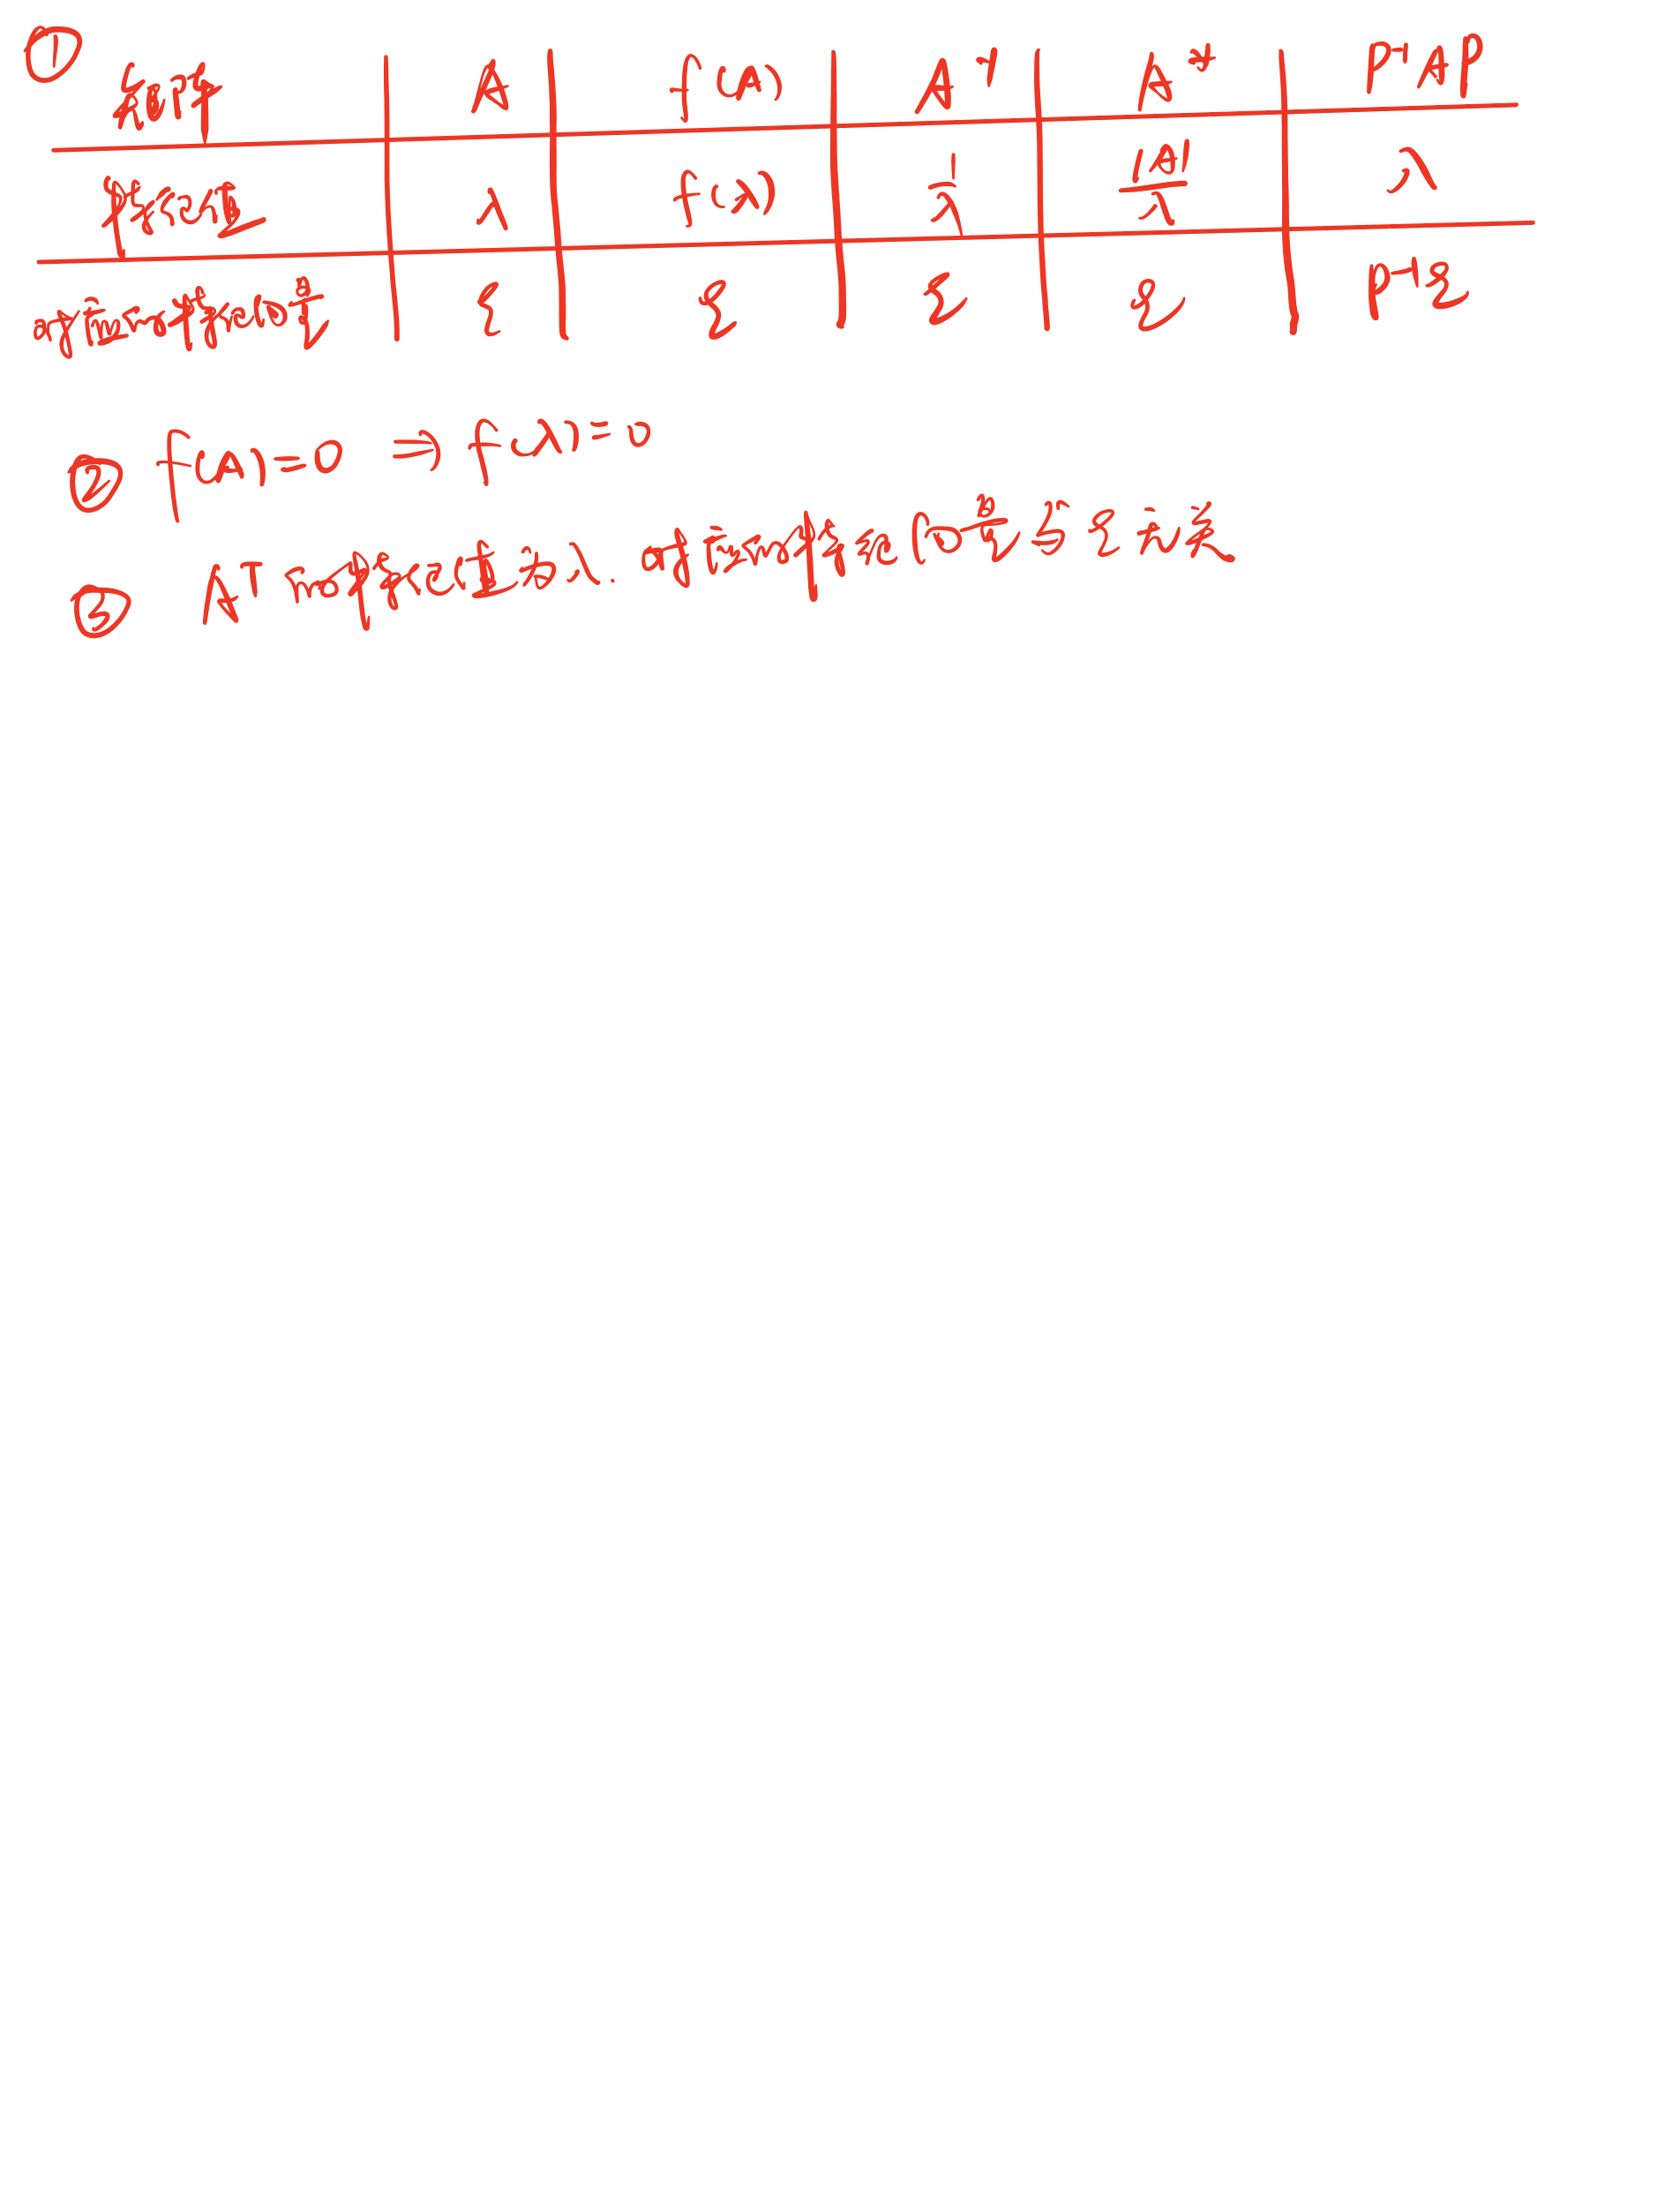 ① 矩阵 A f(A) A⁻¹ A* P⁻¹AP
特征值 λ f(λ) 1/λ |A|/λ λ
对应的特征向量 ξ ξ ξ ξ P⁻¹ξ
② f(A)=0 ⇒ f(λ)=0
③ Aᵀ的特征值为λ. 对应的特征向量与ξ无关